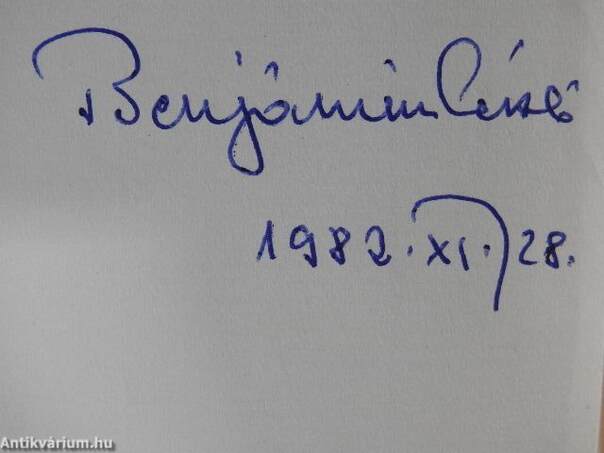 Benjámin László
1982. XI. 28.
Antikvárium.hu